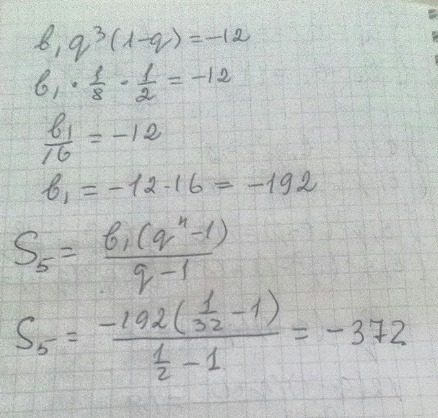 b₁q³(1-q)=-12
b₁ · 1/8 · 1/2 = -12
b₁/16 = -12
b₁ = -12·16 = -192
S₅ = b₁(qⁿ-1)/(q-1)
S₅ = -192(1/32 - 1)/(1/2 - 1) = -372